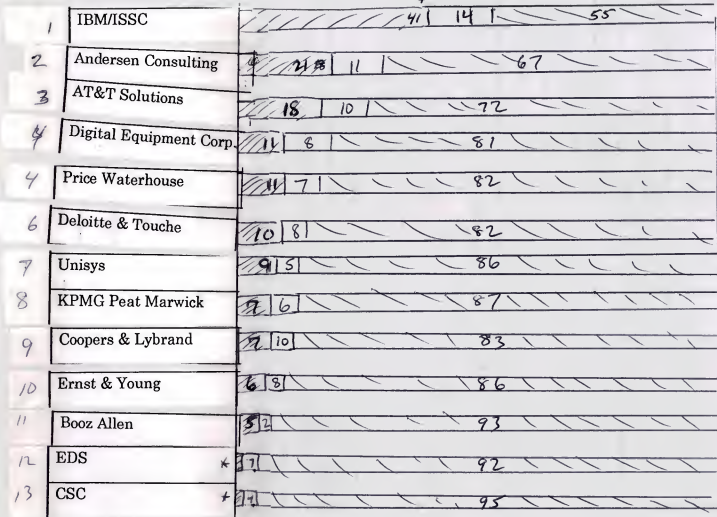 1 IBM/ISSC 41 14 55
2 Andersen Consulting 11 67
3 AT&T Solutions 18 10 72
4 Digital Equipment Corp. 11 8 81
4 Price Waterhouse 11 7 82
6 Deloitte & Touche 10 8 82
7 Unisys 9 5 86
8 KPMG Peat Marwick 7 6 87
9 Coopers & Lybrand 7 10 83
10 Ernst & Young 6 8 86
11 Booz Allen 5 2 93
12 EDS * 92
13 CSC * 95